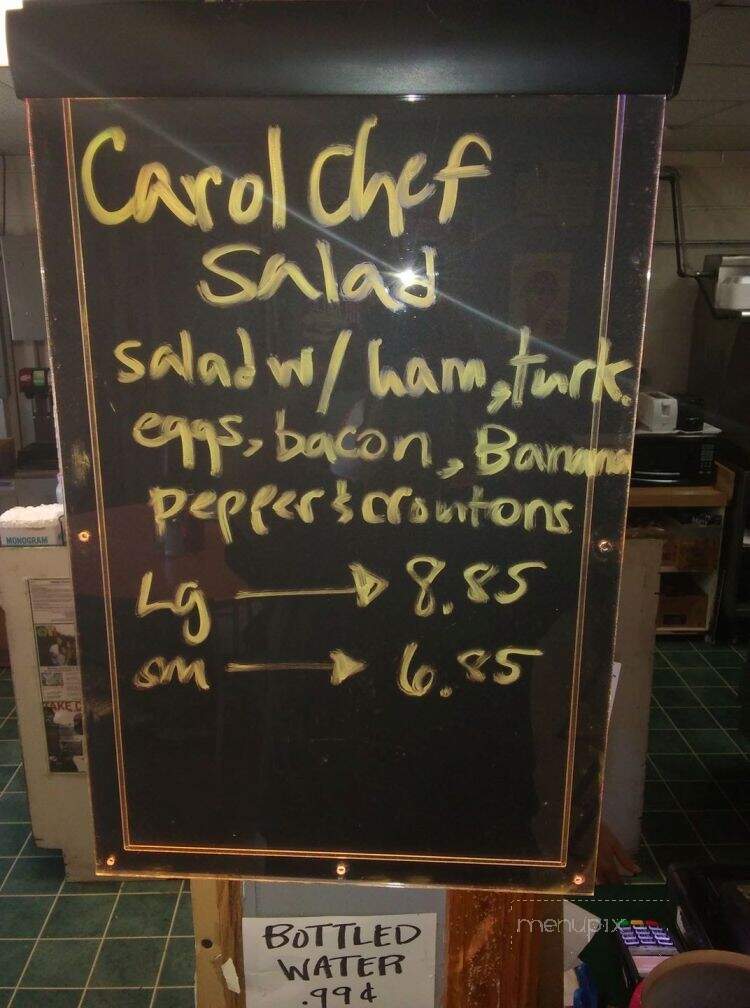 Carol Chef
Salad
salad w/ ham, turk.
eggs, bacon, Banana
pepper & croutons
Lg → 8.85
sm → 6.85
MONOGRAM
TAKE C
BOTTLED
WATER
.99¢
menupix